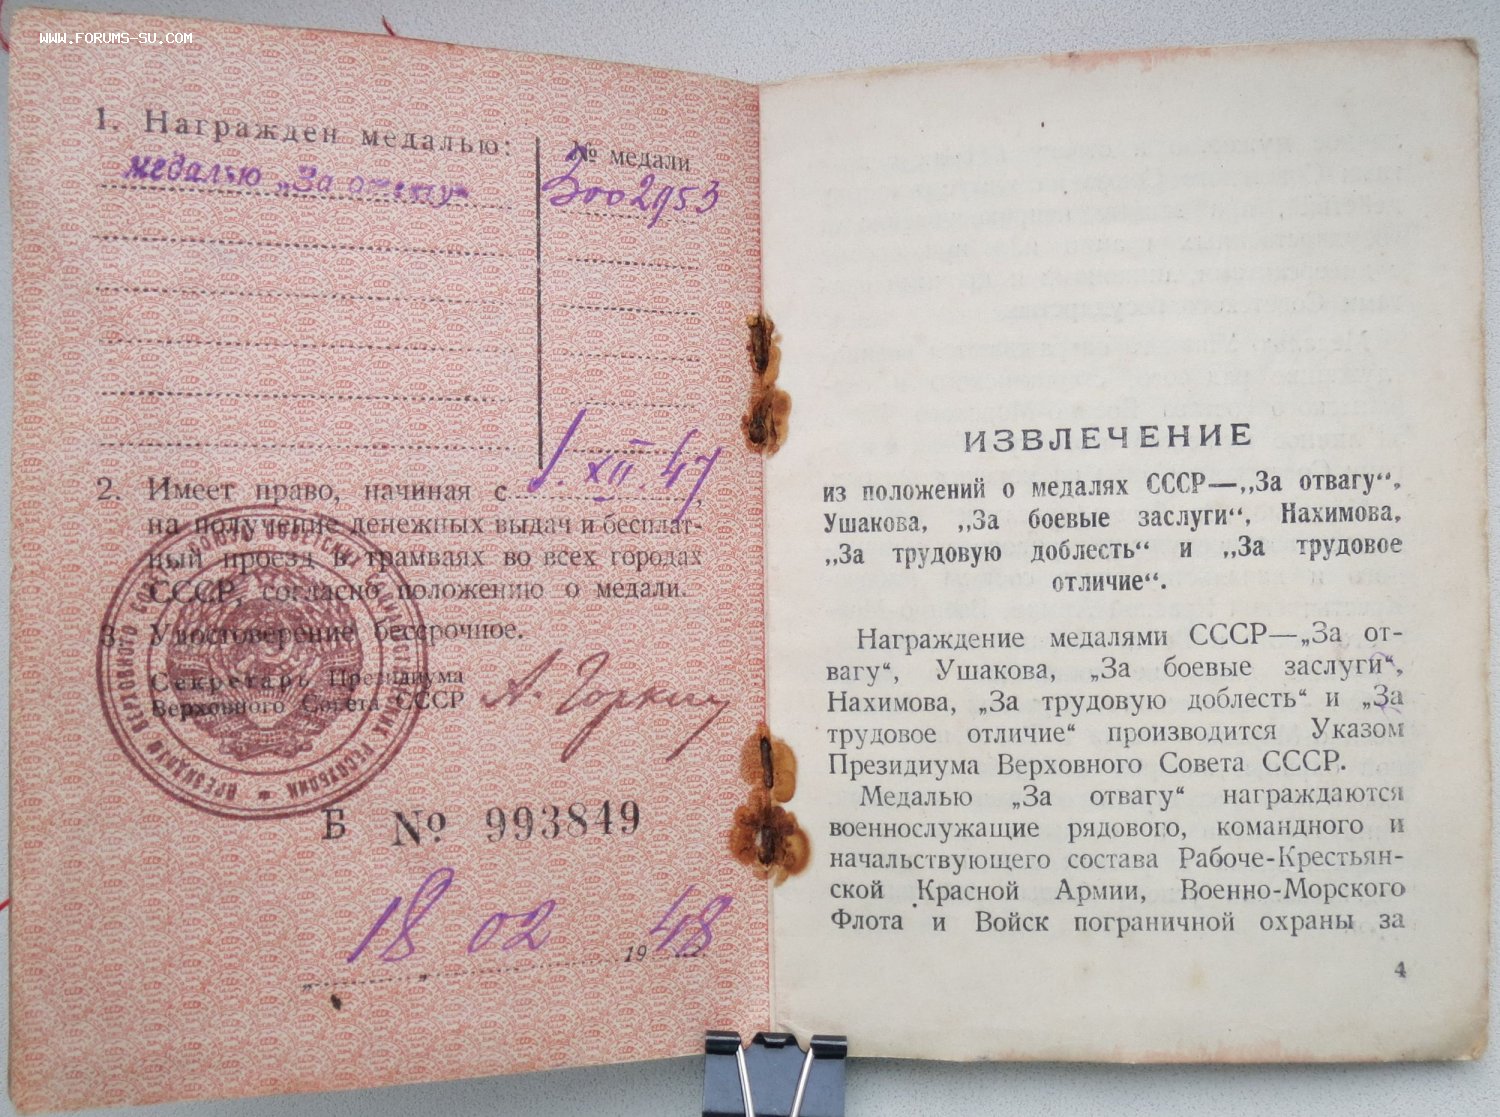 WWW.FORUMS-SU.COM
1. Награжден медалью:
№ медали
медалью „За отвагу"
3002953
2. Имеет право, начиная с 1.XII.47,
на получение денежных выдач и бесплат-
ный проезд в трамваях во всех городах
СССР, согласно положению о медали.
3. Удостоверение бессрочное.
Секретарь Президиума
Верховного Совета СССР
А. Горкин
Б № 993849
„18„ 02 1948
ИЗВЛЕЧЕНИЕ
из положений о медалях СССР—„За отвагу“,
Ушакова, „За боевые заслуги“, Нахимова,
„За трудовую доблесть“ и „За трудовое
отличие“.
Награждение медалями СССР—„За от-
вагу“, Ушакова, „За боевые заслуги“,
Нахимова, „За трудовую доблесть“ и „За
трудовое отличие“ производится Указом
Президиума Верховного Совета СССР.
Медалью „За отвагу“ награждаются
военнослужащие рядового, командного и
начальствующего состава Рабоче-Крестьян-
ской Красной Армии, Военно-Морского
Флота и Войск пограничной охраны за
4